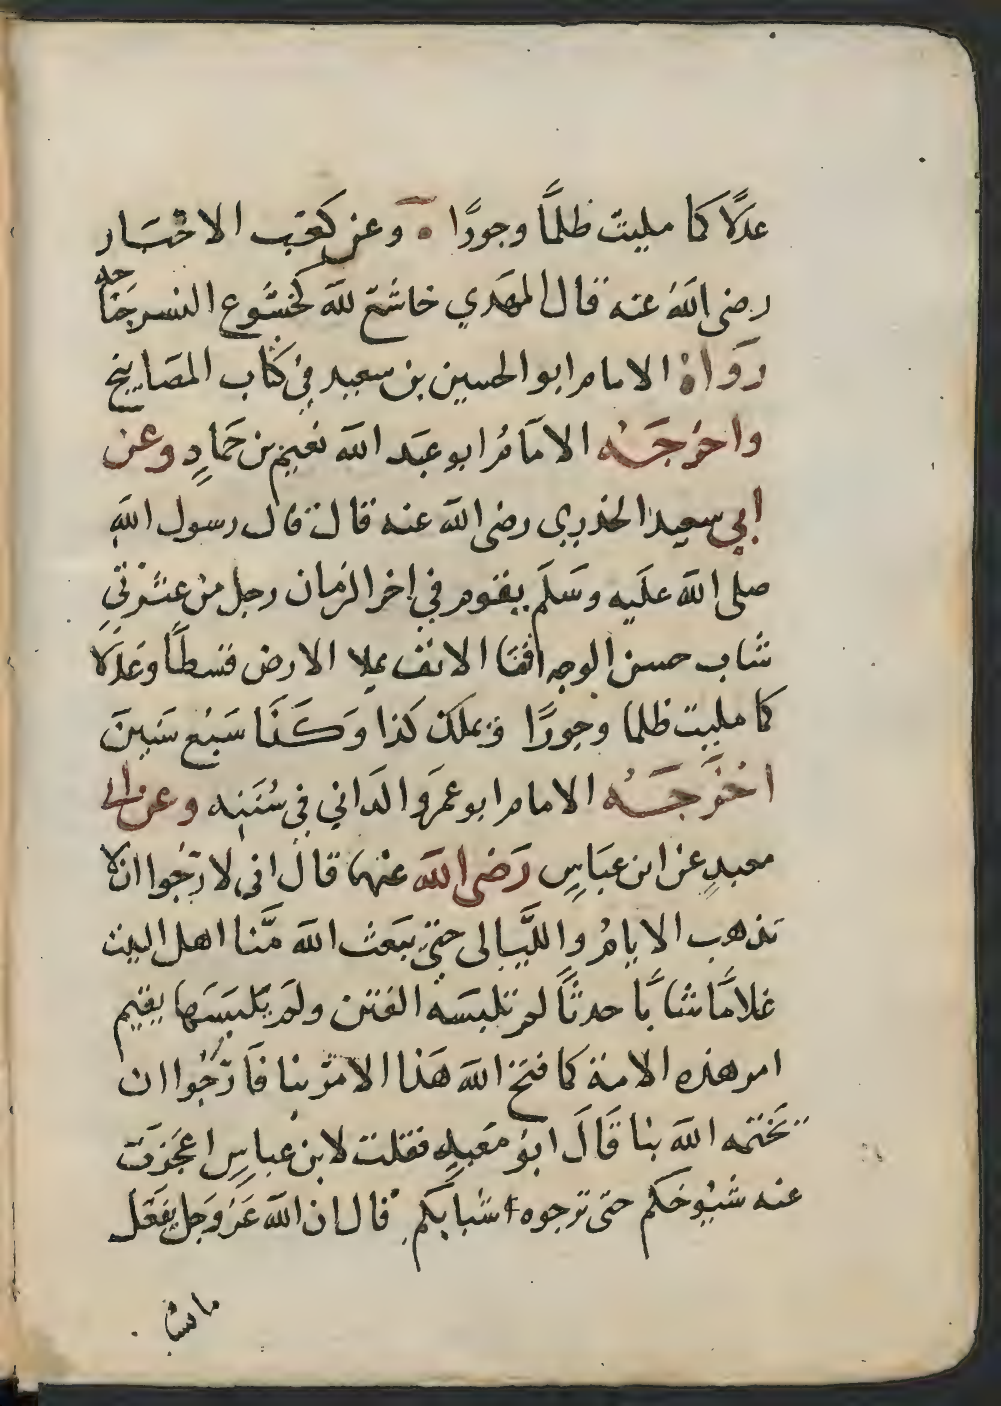 عدلًا كما مليت ظلمًا وجورًا ۰ وعن كعب الاحبار
رضي الله عنه قال المهدي خاشع لله كخشوع النسر جناحه
رواه الامام ابو الحسين بن سعيد في كتاب المصابيح
واخرجه الامامُ ابو عبد الله نعيم بن حمادٍ وعن
ابي سعيد الخدري رضي الله عنه قال قال رسول الله
صلى الله عليه وسَلَم يقوم في اخر الزمان رجل من عترتي
شاب حسن الوجه اقنا الانف يملا الارض قسطًا وعدلًا
كما مليت ظلما وجورًا ويملك كذا وكذا سبع سنين
اخرجه الامام ابو عمرو الداني في سُننه وعن ابي
معبدٍ عن ابن عباسٍ رضي الله عنهما قال اني لارجوا ان لا
تذهب الايامُ والليالى حتى يبعث الله منّا اهل البيت
غلامًا شابًا حدثًا لم تلبسه الفتن ولم يلبسها يقيم
امر هذه الامة كما فتح الله هذا الامر بنا فارجُوا ان
يختمه الله بنا قال ابو معبدٍ فقلت لابن عباسٍ اعجزت
عنه شيوخكم حتى ترجوه شبابكم قال ان الله عز وجل يفعل
ما يشا